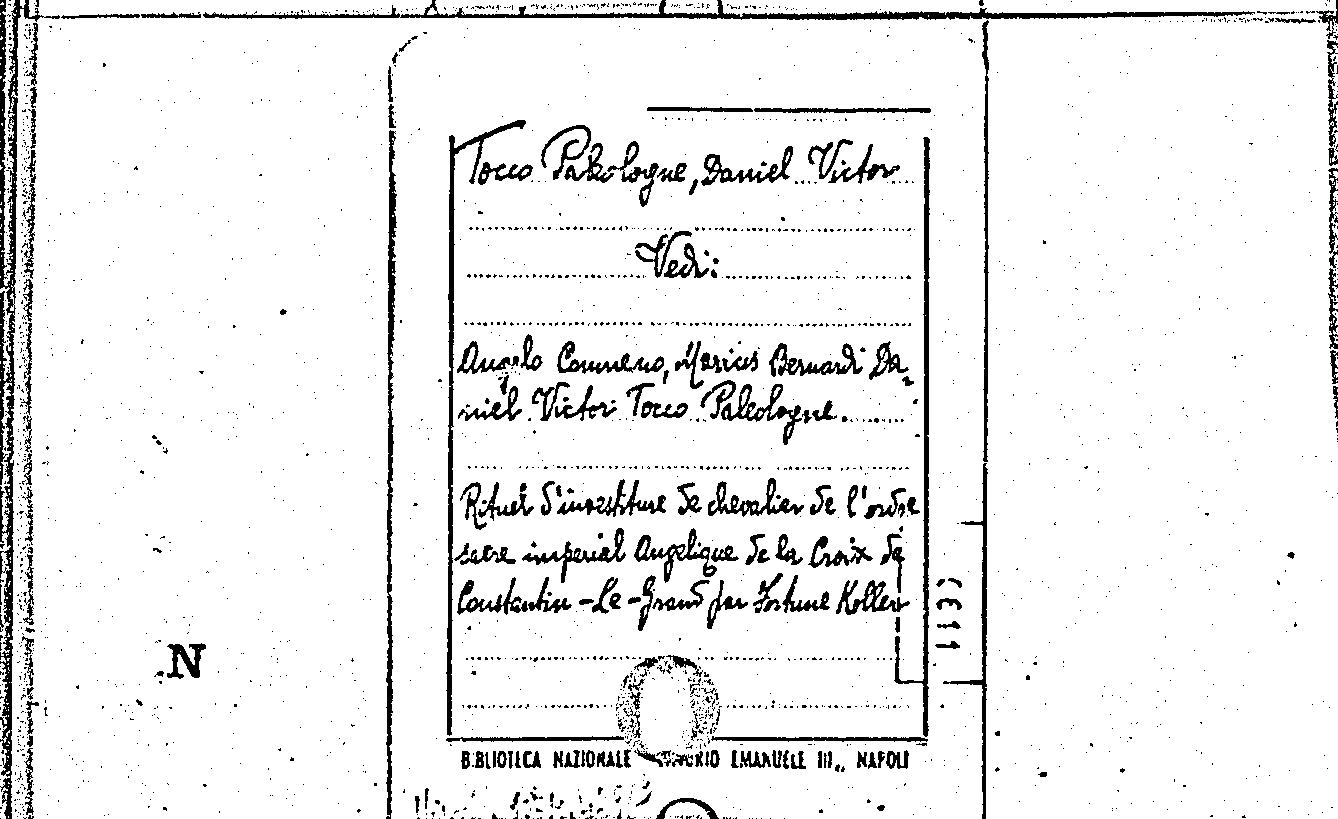 Tocco Paleologue, Daniel Victor
Vedi:
Angelo Comneno, Marius Bernardi Da-
niel Victor Tocco Paleologue.
Rituel d'investiture de chevalier de l'ordre
sacre imperial Angelique de la Croix de
Constantin-Le-Grand par Fortune Koller
N
BIBLIOTECA NAZIONALE VITTORIO EMANUELE III,, NAPOLI